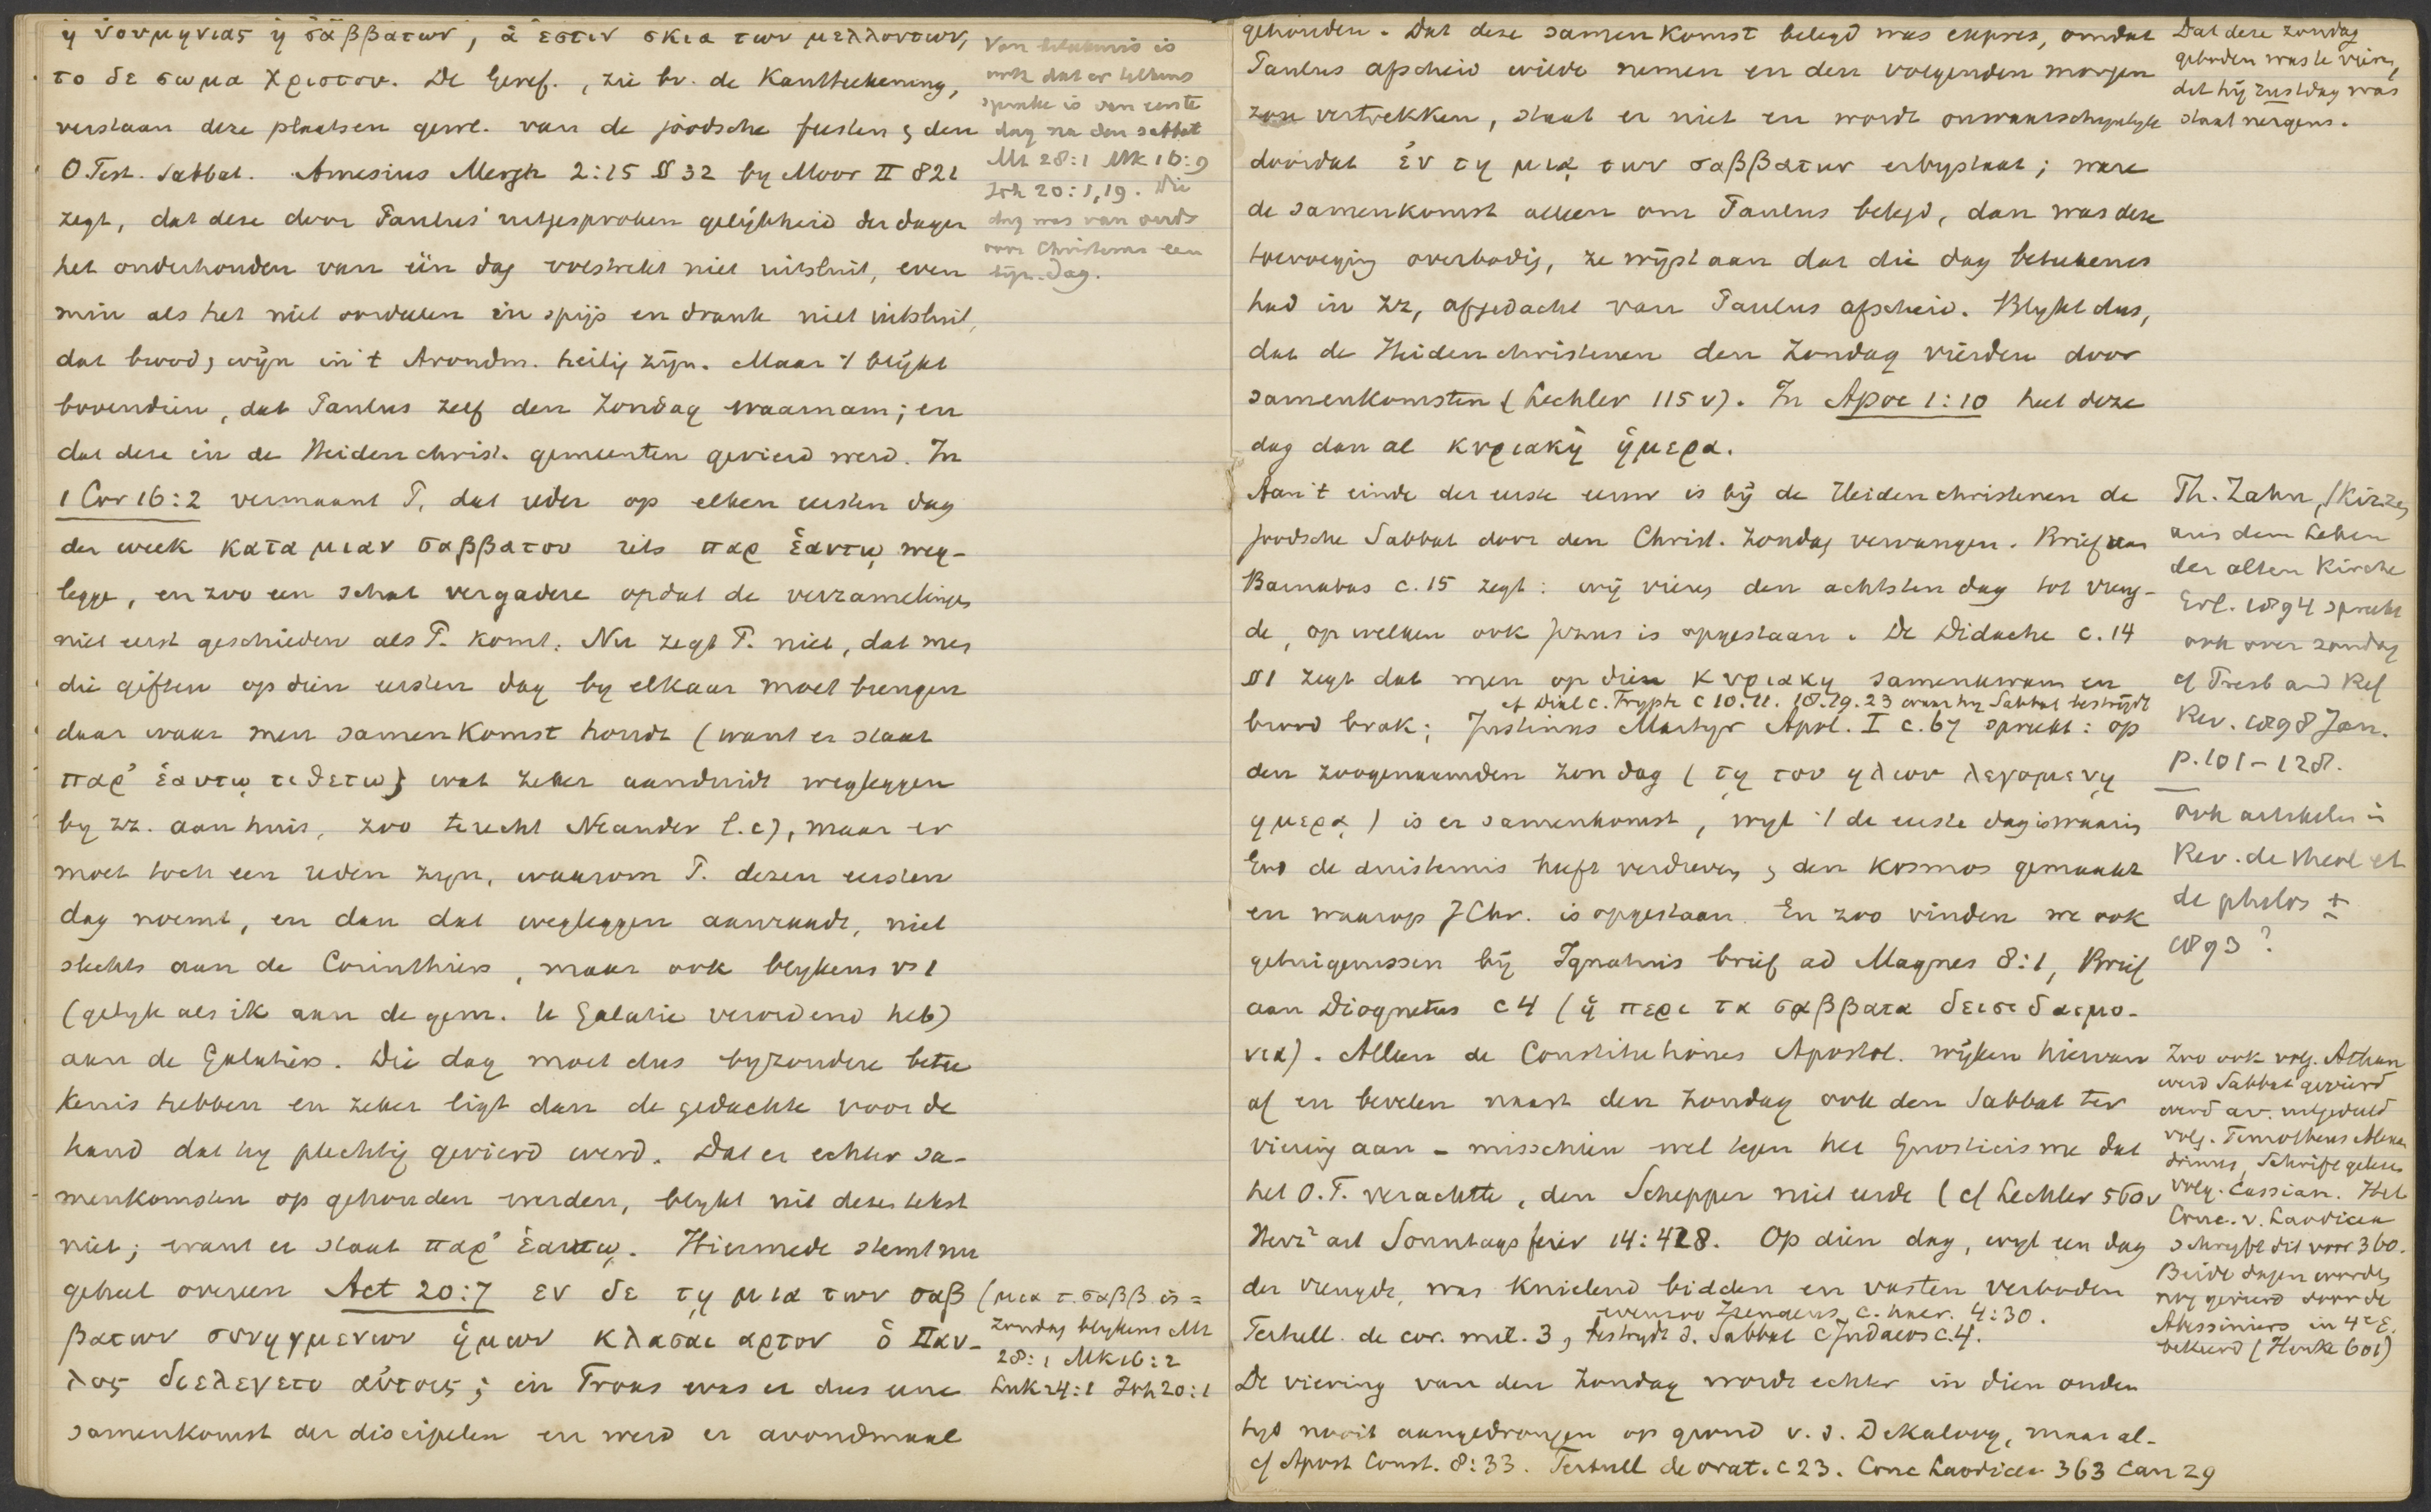 ἠ νουμηνιας ἠ σαββατων, ἁ ἐστιν σκια των μελλοντων,
το δε σωμα Χριστου. De Geref., zie bv. de Kantteekening,
verstaan deze plaatsen gewl. van de joodsche feesten & den
O.Test. Sabbat. Amesius Mergh 2:15 § 32 by Moor II 821
zegt, dat deze door Paulus' uitgesproken gelijkheid der dagen
het onderhouden van één dag volstrekt niet uitsluit, even
min als het niet oordeelen in spijs en drank niet uitsluit,
dat brood & wijn in 't Avondm. heilig zijn. Maar 't blijkt
bovendien, dat Paulus zelf den Zondag waarnam; en
dat deze in de Heidenchrist. gemeenten gevierd werd. In
1 Cor 16:2 vermaant P. dat ieder op elken eersten dag
der week κατα μιαν σαββατου iets παρ ἑαυτῳ weg-
legge, en zoo een schat vergadere opdat de verzamelingen
niet eerst geschieden als P. komt. Nu zegt P. niet, dat men
die giften op dien eersten dag by elkaar moet brengen
daar waar men samenkomst houdt (want er staat
παρ' ἑαυτῳ τιθετω) wat zeker aanduidt wegleggen
by zz. aan huis, zoo terecht Neander l.c), maar er
moet toch een reden zyn, waarom P. dezen eersten
dag noemt, en dan dat wegleggen aanraadt, niet
slechts aan de Corinthiers, maar ook blykens vs 1
(gelyk als ik aan de gem. in Galatie verordend heb)
aan de Galatiers. Die dag moet dus byzondere betee
kenis hebben en zeker ligt dan de gedachte voor de
hand dat hy plechtig gevierd werd. Dat er echter sa-
menkomsten op gehouden werden, blykt uit dezen tekst
niet; want er staat παρ' ἑαυτῳ. Hiermede stemt nu
geheel overeen Act 20:7 εν δε τῃ μια των σαβ
βατων συνηγμενων ἡμων κλασαι αρτον ὁ Παυ-
λος διελεγετο αὐτοις; in Troas was er dus eene
samenkomst der discipelen en werd er avondmaal
Van beteekenis is
ook dat er telkens
sprake is van eerste
dag na den sabbat
Mt 28:1 Mk 16:9
Joh 20:1,19. Die
dag was van ouds
voor Christenen een
fijn-dag.
(μια τ. σαββ is =
Zondag blykens Mt
28:1 Mk 16:2
Luk 24:1 Joh 20:1
gehouden. Dat deze samenkomst belegd was expres, omdat
Paulus afscheid wilde nemen en den volgenden morgen
zou vertrekken, staat er niet en wordt onwaarschynlyk
doordat ἐν τῃ μιᾳ των σαββατων erbystaat; ware
de samenkomst alleen om Paulus belegd, dan was deze
toevoeging overbodig, ze wijst aan dat die dag beteekenis
had in zz, afgedacht van Paulus afscheid. Blykt dus,
dat de Heidenchristenen den Zondag vierden door
samenkomsten (Lechler 115 v). In Apoc 1:10 heet deze
dag dan al κυριακὴ ἡμερα.
Aan 't einde der eerste eeuw is bij de Heidenchristenen de
Joodsche Sabbat door den Christ. Zondag vervangen. Brief van
Barnabas c. 15 zegt: wij vieren den achtsten dag tot vreug-
de, op welken ook Jezus is opgestaan. De Didache c. 14
§1 zegt dat men op dien κυριακη samenkwam en
cf Dial c. Tryph c 10.11. 18.19.23 waar hy Sabbat bestrydt
brood brak; Justinus Martyr Apol. I c. 67 spreekt: op
den zoogenaamden zondag (τῃ του ηλιου λεγομενῃ
ημερᾳ) is er samenkomst, wyl 't de eerste dag is waarin
God de duisternis heeft verdreven & den kosmos gemaakt
en waarop J Chr. is opgestaan. En zoo vinden we ook
getuigenissen bij Ignatius brief ad Magnes 8:1, Brief
aan Diognetus c 4 (ἡ περι τα σαββατα δεισιδαιμο-
νια). Alleen de Constitutiones Apostol. wijken hiervan
af en bevelen naast den Zondag ook den Sabbat ter
viering aan - misschien wel tegen het Gnosticisme dat
het O.T. verachtte, den Schepper niet eerde (cf Lechler 560 v
Herz² art Sonntagsfeier 14:428. Op dien dag, wyl een dag
der vreugde, was knielend bidden en vasten verboden
evenzoo Irenaeus, c. haer. 4:30.
Tertull. de cor. mil. 3, bestrydt d. Sabbat c Judaeos c. 4.
De viering van den Zondag wordt echter in dien ouden
tyd nooit aangedrongen op grond v. d. Dekaloog, maar al-
cf Apost Const. 8:33. Tertull de orat. c 23. Conc Laodicea 363 Can 29
Dat deze zondag
geboden was te vieren,
dat hij rustdag was
staat nergens.
Th. Zahn, Skizzen
aus dem Leben
der alten Kirche
Erl. 1894 spreekt
ook over zondag
cf Presb and Ref
Rev. 1898 Jan.
p. 101-128.
ook artikelen in
Rev. de theol et
de philos ±
1893?
Zoo ook volg. Athan
werd Sabbat gevierd
werd av. uitgedeeld
volg. Timotheus Alexan
drinus, Schrift gelezen
volg. Cassian. Het
Conc. v. Laodicea
schryft dit voor 360.
Beide dagen worden
nog gevierd door de
Abessiniers in 4e E.
bekeerd (Hook 601)